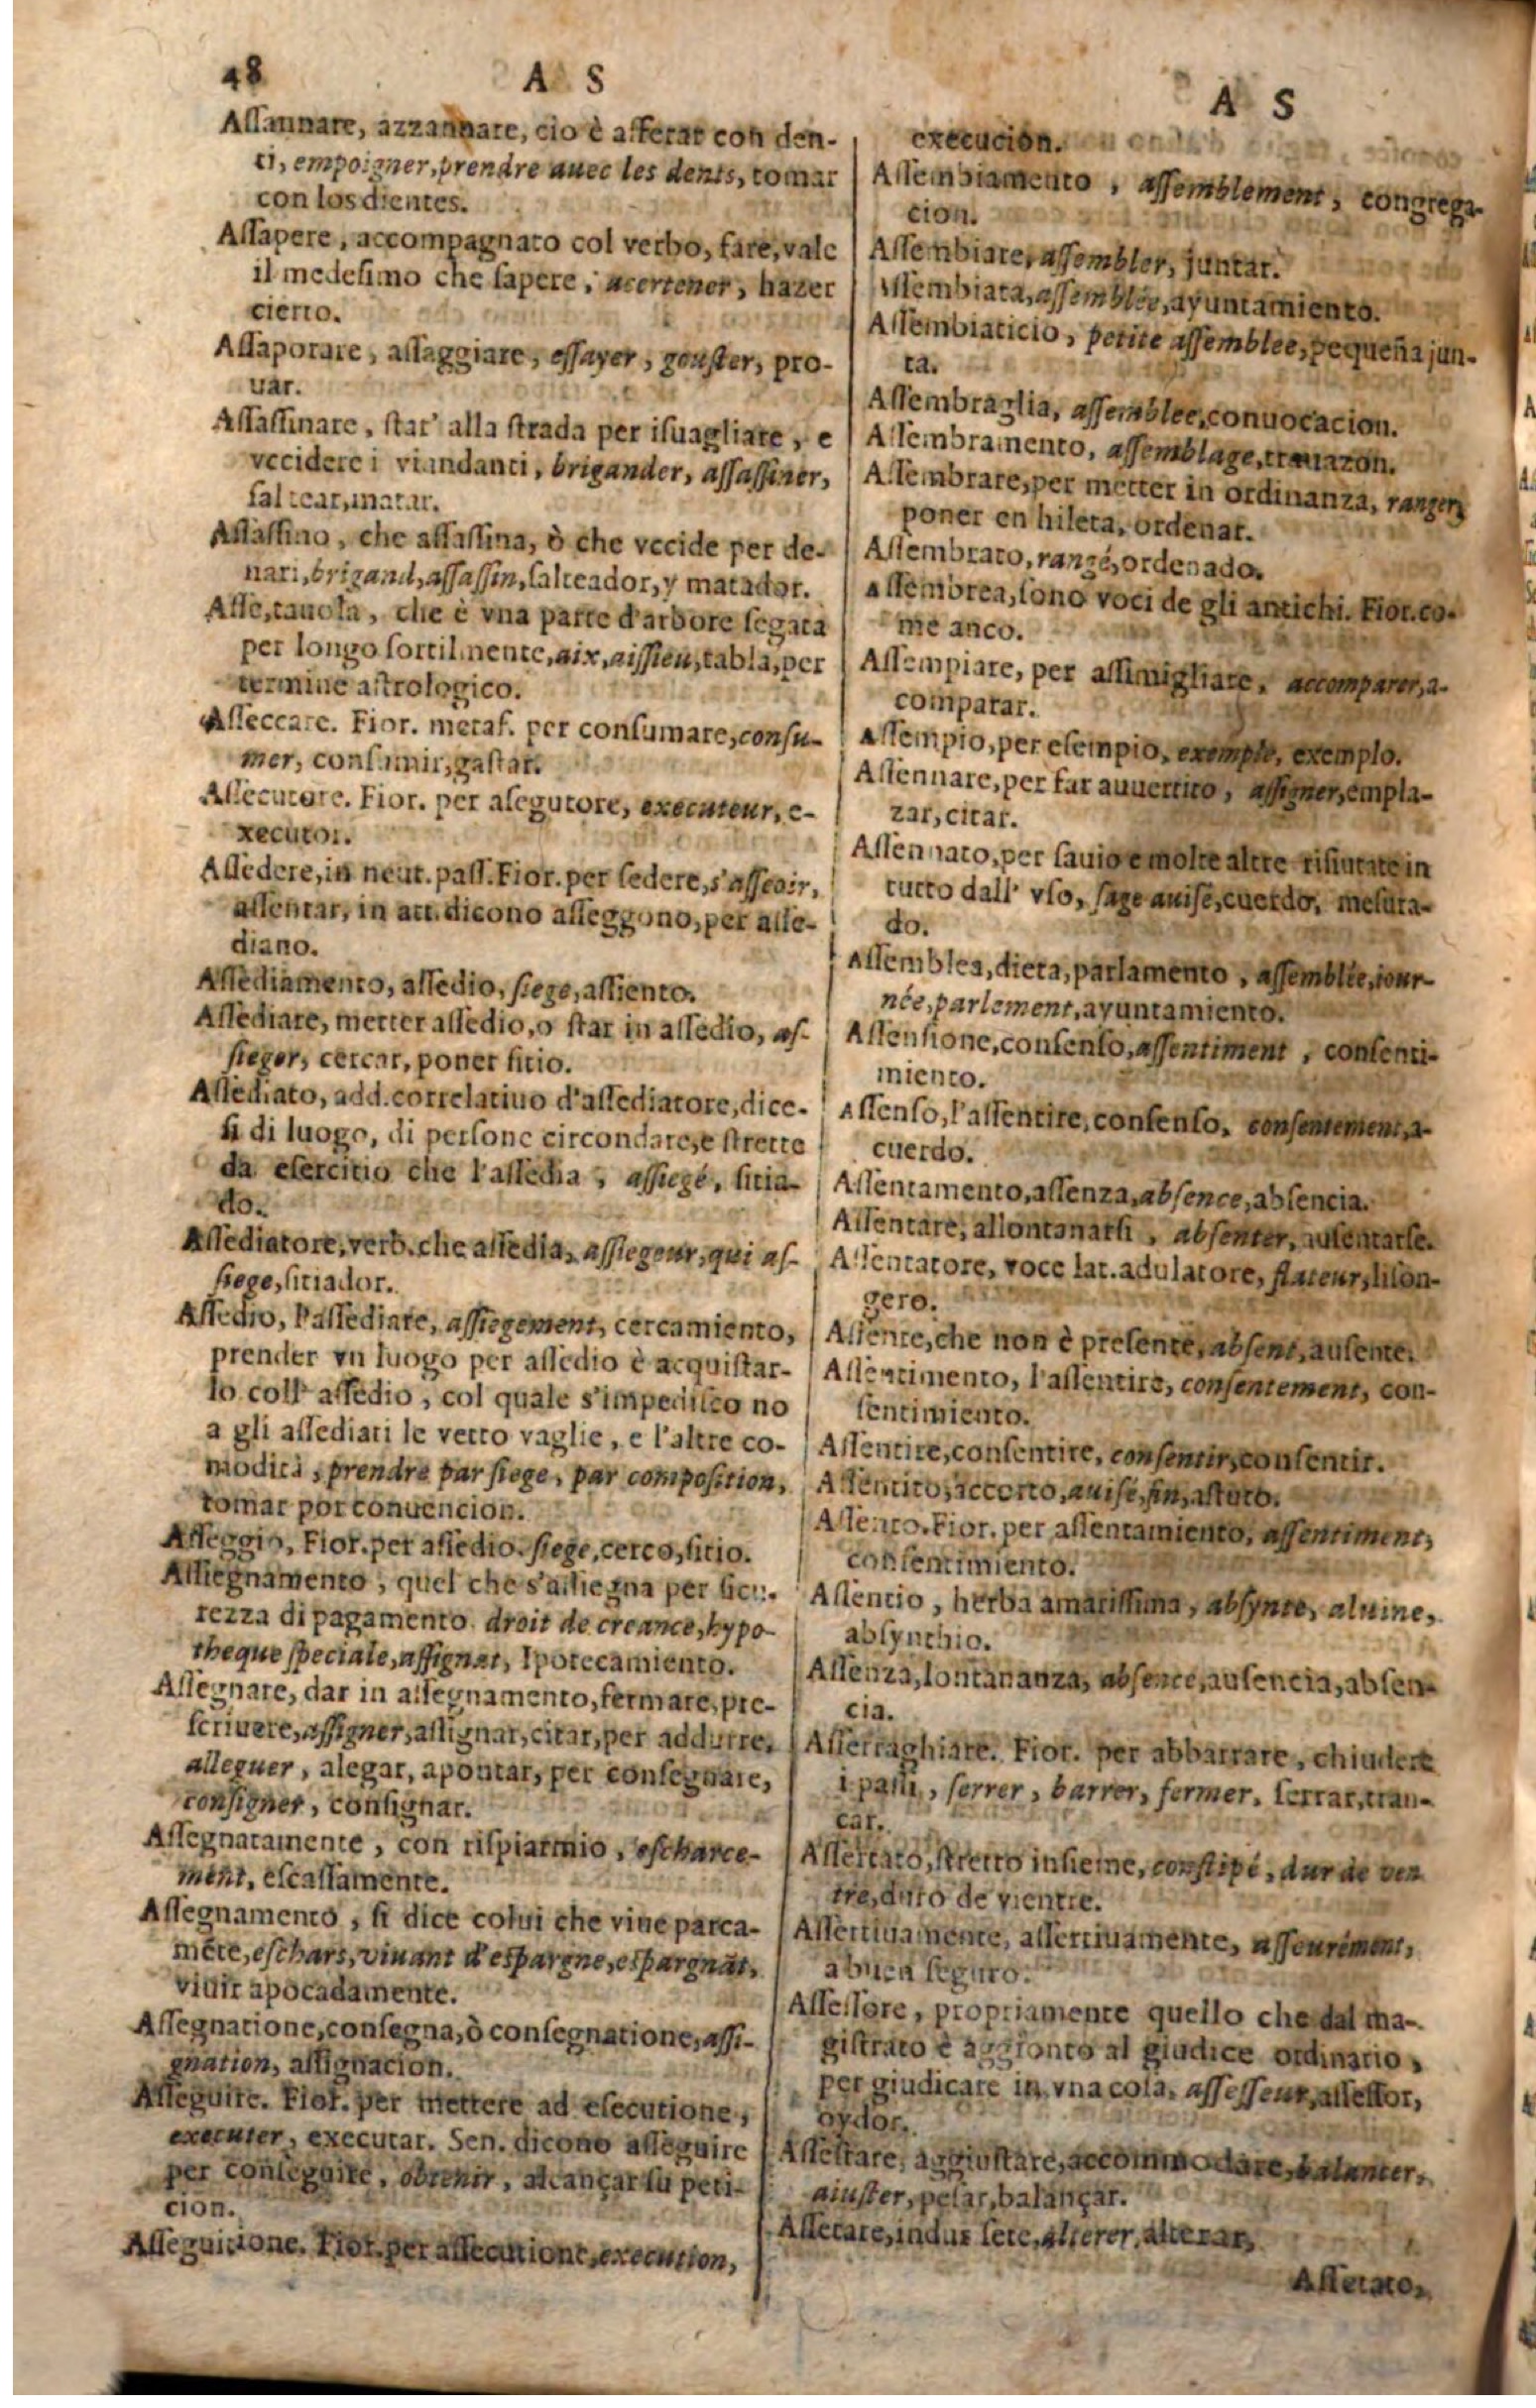 48
A S
Aſſannare, azzannare, cio è afferar con den-
ti, empoigner, prendre auec les dents, tomar
con los dientes.
Aſſapere, accompagnato col verbo, fare, vale
il medeſimo che ſapere, acertener, hazer
cierto.
Aſſaporare, aſſaggiare, eſſayer, gouſter, pro-
uar.
Aſſaſſinare, ſtar' alla ſtrada per iſuagliare, e
vccidere i viandanti, brigander, aſſaſſiner,
ſaltear, matar.
Aſſaſſino, che aſſaſſina, ò che vccide per de-
nari, brigand, aſſaſſin, ſalteador, y matador.
Aſſe, tauola, che è vna parte d'arbore ſegata
per longo ſottilmente, aix, aiſſieu, tabla, per
termine aſtrologico.
Aſſeccare. Fior. metaf. per conſumare, conſu-
mer, conſumir, gaſtar.
Aſſecutore. Fior. per aſegutore, executeur, e-
xecutor.
Aſſedere, in neut. paſſ. Fior. per ſedere, s'aſſeoir,
aſſentar, in att. dicono aſſeggono, per aſſe-
diano.
Aſſediamento, aſſedio, ſiege, aſſiento.
Aſſediare, metter aſſedio, o ſtar in aſſedio, aſ-
ſieger, cercar, poner ſitio.
Aſſediato, add. correlatiuo d'aſſediatore, dice-
ſi di luogo, di perſone circondate, e ſtrette
da eſercitio che l'aſſedia, aſſiegé, ſitia-
do.
Aſſediatore, verb. che aſſedia, aſſiegeur, qui aſ-
ſiege, ſitiador.
Aſſedio, l'aſſediare, aſſiegement, cercamiento,
prender vn luogo per aſſedio è acquiſtar-
lo coll' aſſedio, col quale s'impediſco no
a gli aſſediati le vetto vaglie, e l'altre co-
modità, prendre par ſiege, par compoſition,
tomar por conuencion.
Aſſeggio, Fior. per aſſedio. ſiege, cerco, ſitio.
Aſſiegnamento, quel che s'aſſiegna per ſicu-
rezza di pagamento. droit de creance, hypo-
theque ſpeciale, aſſignat, Ipotecamiento.
Aſſegnare, dar in aſſegnamento, fermare, pre-
ſcriuere, aſſigner, aſſignar, citar, per addurre,
alleguer, alegar, apontar, per conſegnare,
conſigner, conſignar.
Aſſegnatamente, con riſpiarmio, eſcharce-
ment, eſcaſſamente.
Aſſegnamento, ſi dice colui che viue parca-
mẽte, eſchars, viuant d'eſpargne, eſpargnãt,
viuir apocadamente.
Aſſegnatione, conſegna, ò conſegnatione, aſſi-
gnation, aſſignacion.
Aſſeguire. Fior. per mettere ad eſecutione,
executer, executar. Sen. dicono aſſeguire
per conſeguire, obtenir, alcançar ſu peti-
cion.
Aſſeguitione. Fior. per aſſecutione, execution,
A S
execucion.
Aſſembiamento, aſſemblement, congrega-
cion.
Aſſembiare, aſſembler, juntar.
Aſſembiata, aſſemblée, ayuntamiento.
Aſſembiaticio, petite aſſemblee, pequeña jun-
ta.
Aſſembraglia, aſſemblee, conuocacion.
Aſſembramento, aſſemblage, trauazon.
Aſſembrare, per metter in ordinanza, ranger,
poner en hilera, ordenar.
Aſſembrato, rangé, ordenado.
Aſſembrea, ſono voci de gli antichi. Fior. co-
me anco.
Aſſempiare, per aſſimigliare, accomparer, a-
comparar.
Aſſempio, per eſempio, exemple, exemplo.
Aſſennare, per far auuertito, aſſigner, empla-
zar, citar.
Aſſennato, per ſauio e molte altre rifiutate in
tutto dall' vſo, ſage auiſé, cuerdo, meſura-
do.
Aſſemblea, dieta, parlamento, aſſemblée, iour-
née, parlement, ayuntamiento.
Aſſenſione, conſenſo, aſſentiment, conſenti-
miento.
Aſſenſo, l'aſſentire, conſenſo, conſentement, a-
cuerdo.
Aſſentamento, aſſenza, abſence, abſencia.
Aſſentare, allontanarſi, abſenter, auſentarſe.
Aſſentatore, voce lat. adulatore, flateur, liſon-
gero.
Aſſente, che non è preſente, abſent, auſente.
Aſſentimento, l'aſſentire, conſentement, con-
ſentimiento.
Aſſentire, conſentire, conſentir, conſentir.
Aſſentito, accorto, auiſé, fin, aſtuto.
Aſſento. Fior. per aſſentamiento, aſſentiment,
conſentimiento.
Aſſentio, herba amariſſima, abſynte, aluine,
abſynthio.
Aſſenza, lontananza, abſence, auſencia, abſen-
cia.
Aſſerraghiare. Fior. per abbarrare, chiudere
i paſſi, ſerrer, barrer, fermer, ſerrar, tran-
car.
Aſſertato, ſtretto inſieme, conſtipé, dur de ven
tre, duro de vientre.
Aſſertiuamente, aſſertiuamente, aſſeurément,
a buen ſeguro.
Aſſeſſore, propriamente quello che dal ma-
giſtrato è aggionto al giudice ordinario,
per giudicare in vna coſa, aſſeſſeur, aſſeſſor,
oydor.
Aſſeſtare, aggiuſtare, accommodare, balancer,
aiuſter, peſar, balançar.
Aſſetare, indur ſete, alterer, alterar,
Aſſetato,